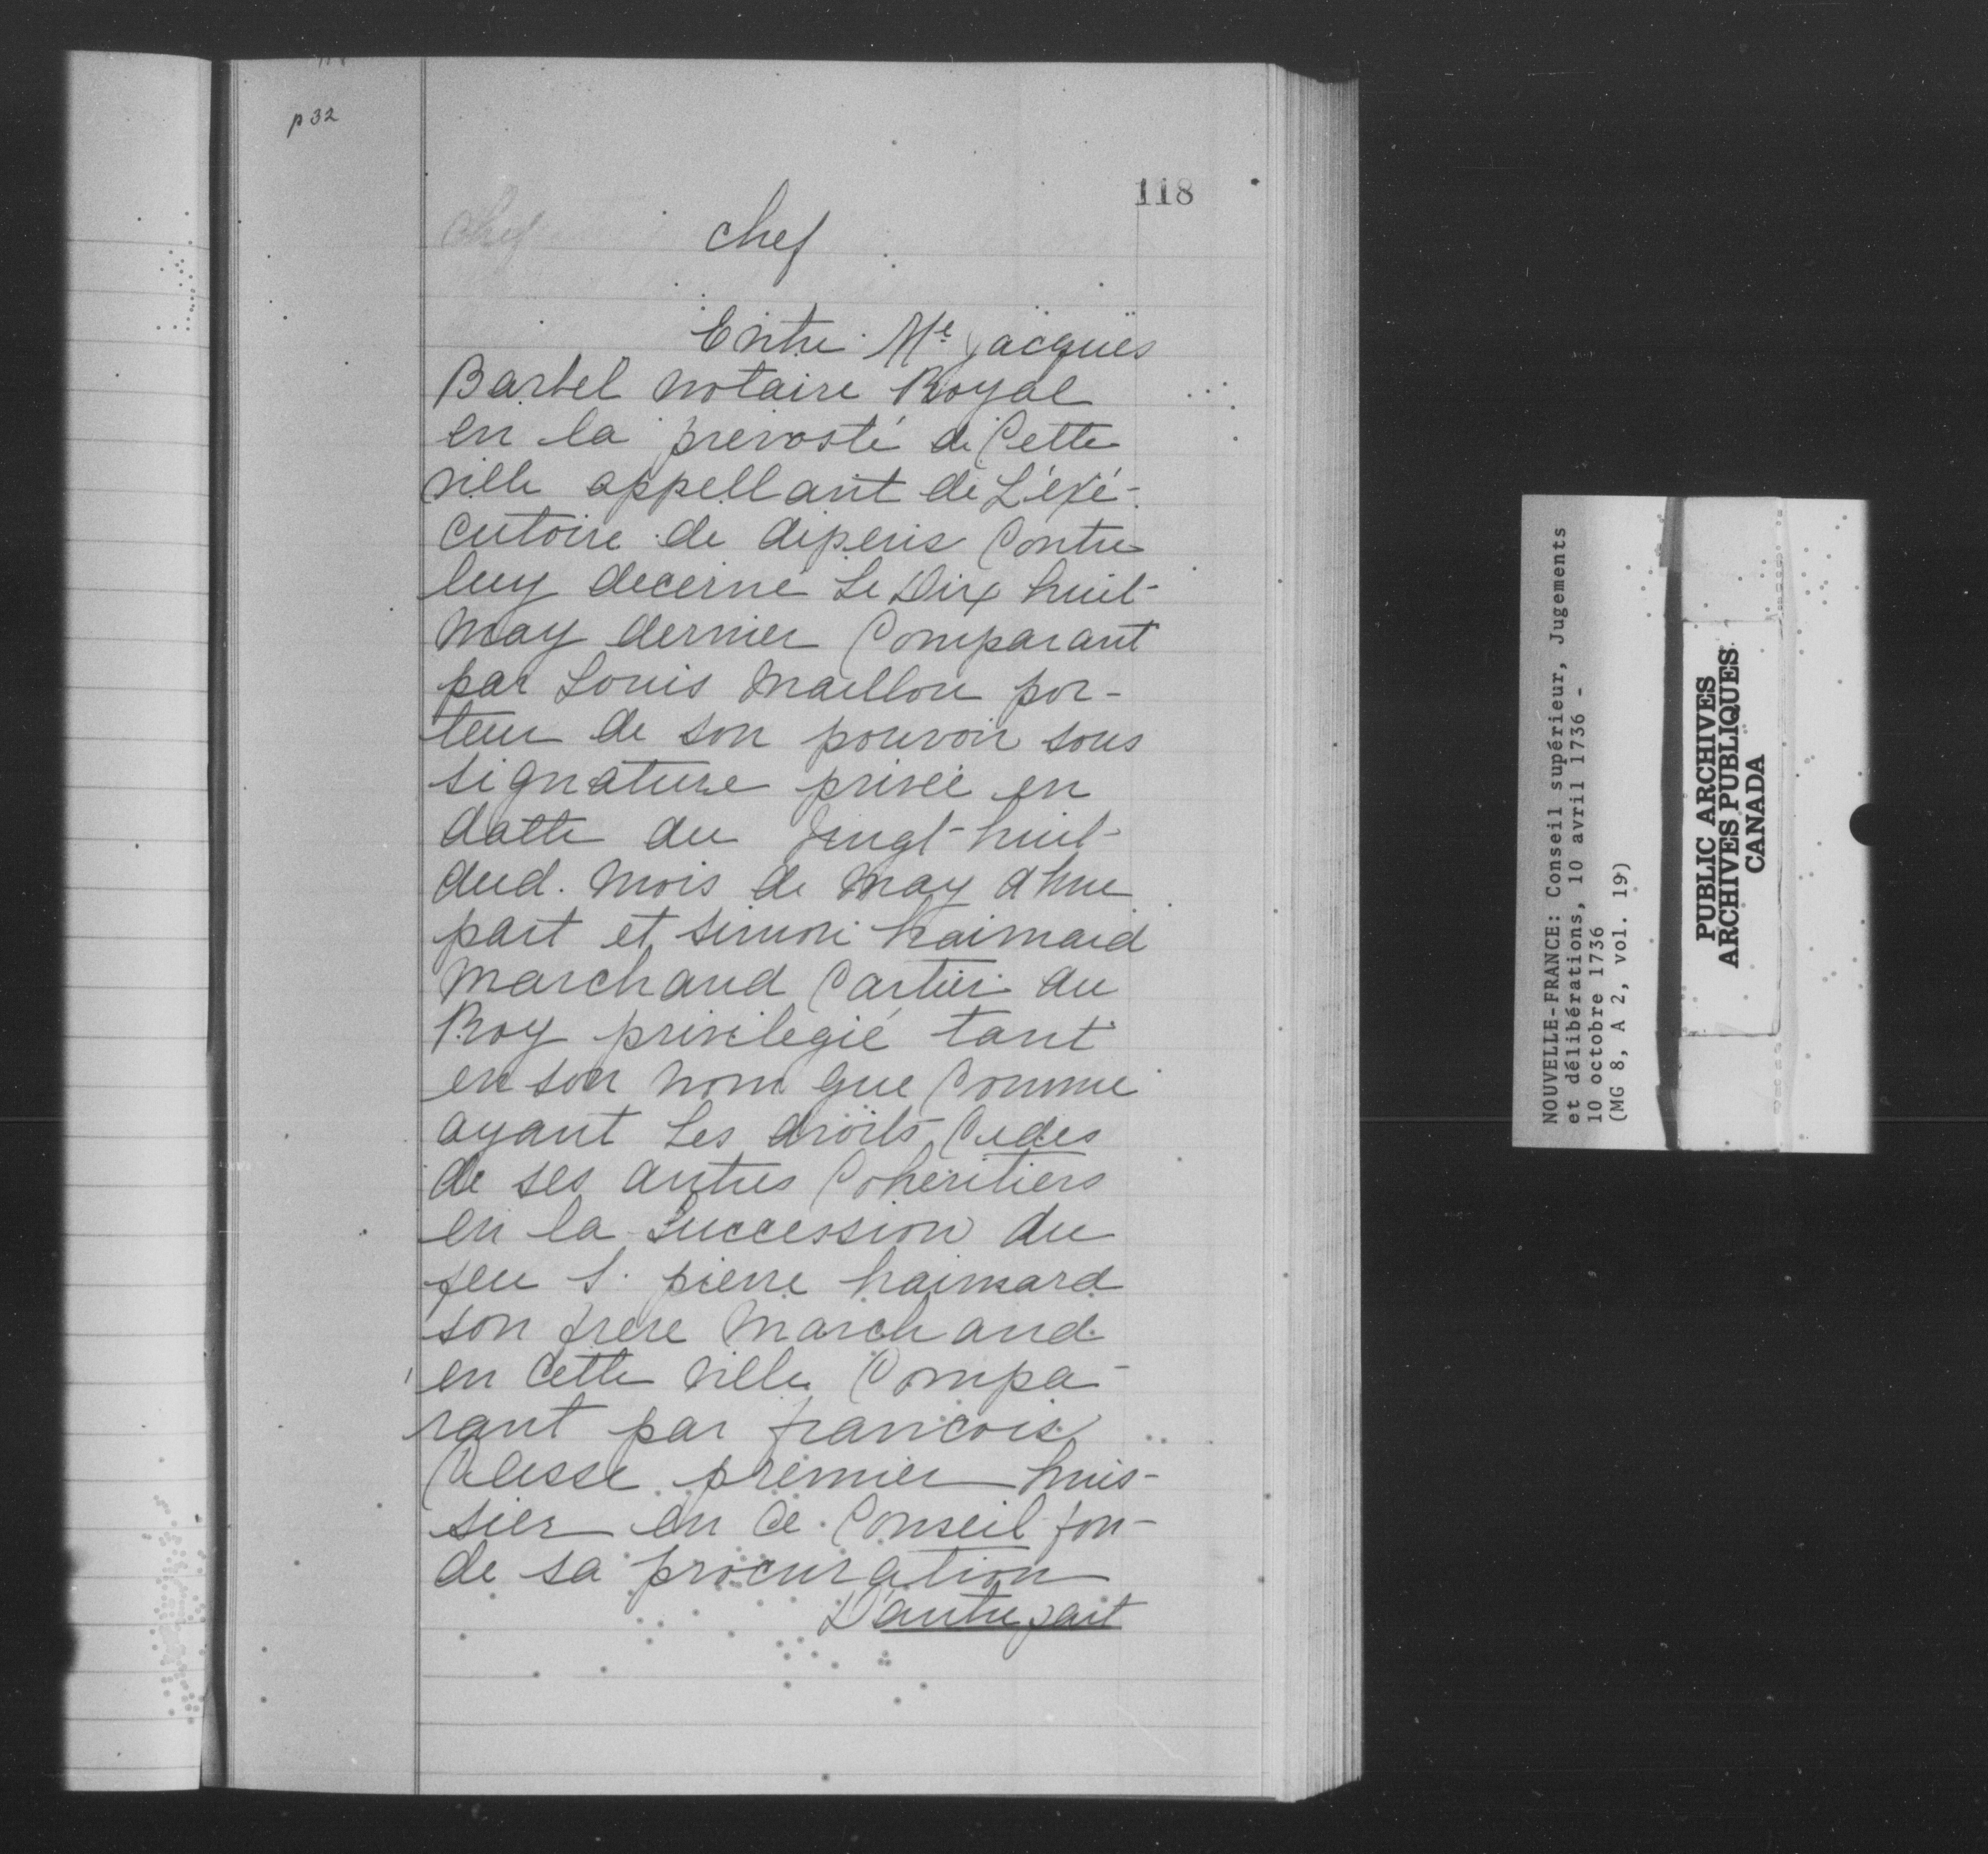 p 32
118
chef
chef
Entre Me jacques
Barbel notaire Royal
en la prevosté de Cette
ville appellant de L'éxé-
cutoire de depens Contre
luy decerné Le Dix huit
may dernier Comparant
par Louis maillou por-
teur de son pouvoir sous
signature privée en
datte du Vingt-huit
dud. mois de may d'hue
part et simon haimard
marchand Cartier du
Roy privilegié tant
en son nom que Comme
ayant Les droits Cedes
de ses autres Coheritiers
en la Succession du
feu S. pierre haimard
son frere marchand
en Cette ville Compa-
rant par francois
Clesse premier huis-
sier en ce Conseil fon-
de sa procuration
D'autre part
NOUVELLE-FRANCE: Conseil supérieur, Jugements
et délibérations, 10 avril 1736 -
10 octobre 1736
(MG 8, A 2, vol. 19)
PUBLIC ARCHIVES
ARCHIVES PUBLIQUES
CANADA